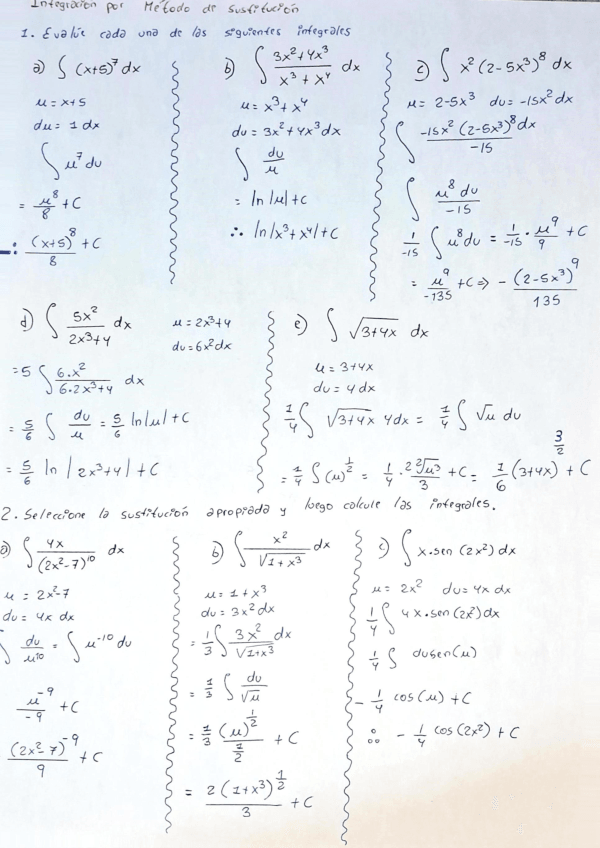 Integración por Método de sustitución
1. Evalúe cada una de las siguientes integrales
a) ∫ (x+5)^7 dx
u = x+5
du = 1 dx
∫ u^7 du
= u^8/8 + C
∴ (x+5)^8/8 + C
b) ∫ (3x^2+4x^3)/(x^3+x^4) dx
u = x^3+x^4
du = 3x^2+4x^3 dx
∫ du/u
= ln|u|+C
∴ ln|x^3+x^4|+C
c) ∫ x^2(2-5x^3)^8 dx
u = 2-5x^3 du = -15x^2 dx
∫ -15x^2(2-5x^3)^8 dx/-15
∫ u^8 du/-15
1/-15 ∫ u^8 du = 1/-15 · u^9/9 + C
= u^9/-135 + C => - (2-5x^3)^9/135
d) ∫ 5x^2/(2x^3+4) dx
u = 2x^3+4
du = 6x^2 dx
= 5 ∫ 6·x^2/(6·2x^3+4) dx
= 5/6 ∫ du/u = 5/6 ln|u|+C
= 5/6 ln|2x^3+4|+C
e) ∫ √(3+4x) dx
u = 3+4x
du = 4 dx
1/4 ∫ √(3+4x) 4dx = 1/4 ∫ √u du
= 1/4 ∫ (u)^(1/2) = 1/4 · 2 ²√(u^3)/3 + C = 1/6 (3+4x)^(3/2) + C
2. Seleccione la sustitución apropiada y luego calcule las integrales.
a) ∫ 4x/(2x^2-7)^10 dx
u = 2x^2-7
du = 4x dx
∫ du/u^10 = ∫ u^-10 du
u^-9/-9 + C
(2x^2-7)^-9/9 + C
b) ∫ x^2/√(1+x^3) dx
u = 1+x^3
du = 3x^2 dx
= 1/3 ∫ 3x^2/√(1+x^3) dx
= 1/3 ∫ du/√u
= 1/3 (u)^(1/2)/(1/2) + C
= 2(1+x^3)^(1/2)/3 + C
c) ∫ x·sen(2x^2) dx
u = 2x^2 du = 4x dx
1/4 ∫ 4x·sen(2x^2) dx
1/4 ∫ du sen(u)
- 1/4 cos(u) + C
∴ - 1/4 cos(2x^2) + C